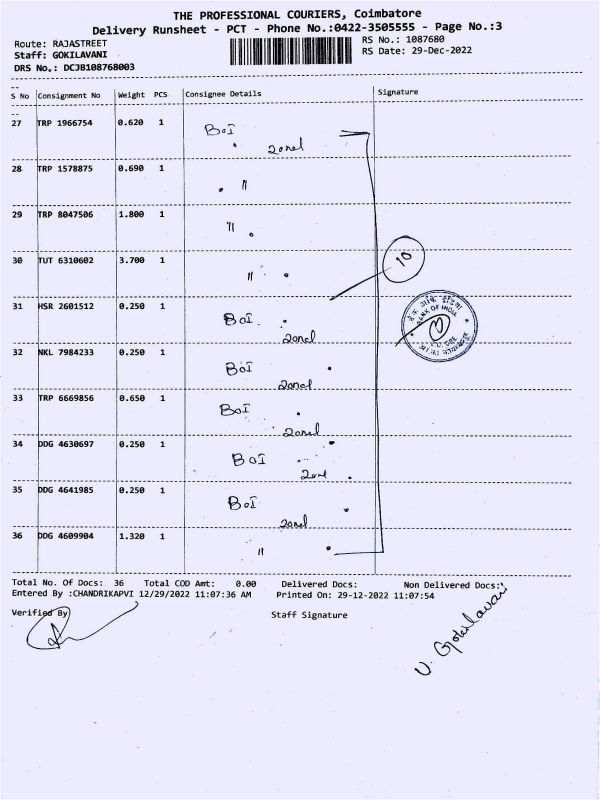 THE PROFESSIONAL COURIERS, Coimbatore
Delivery Runsheet - PCT - Phone No.:0422-3505555 - Page No.:3
Route: RAJASTREET
Staff: GOKILAVANI
DRS No.: DCJB108768003
RS No.: 1087680
RS Date: 29-Dec-2022
S No Consignment No Weight PCS Consignee Details Signature
27 TRP 1966754 0.620 1 BOI
zonel
28 TRP 1578875 0.690 1 "
29 TRP 8047506 1.800 1 "
30 TUT 6310602 3.700 1 "
10
31 HSR 2601512 0.250 1 BOI
zonel
BANK OF INDIA
32 NKL 7984233 0.250 1 BOI
zonel
33 TRP 6669856 0.650 1 BOI
zonel
34 DDG 4630697 0.250 1 BOI
zonel
35 DDG 4641985 0.250 1 BOI
zonel
36 DDG 4609904 1.320 1 "
Total No. Of Docs: 36 Total COD Amt: 0.00 Delivered Docs: Non Delivered Docs:
Entered By :CHANDRIKAPVI 12/29/2022 11:07:36 AM Printed On: 29-12-2022 11:07:54
Verified By
Staff Signature
V. Gokilavani